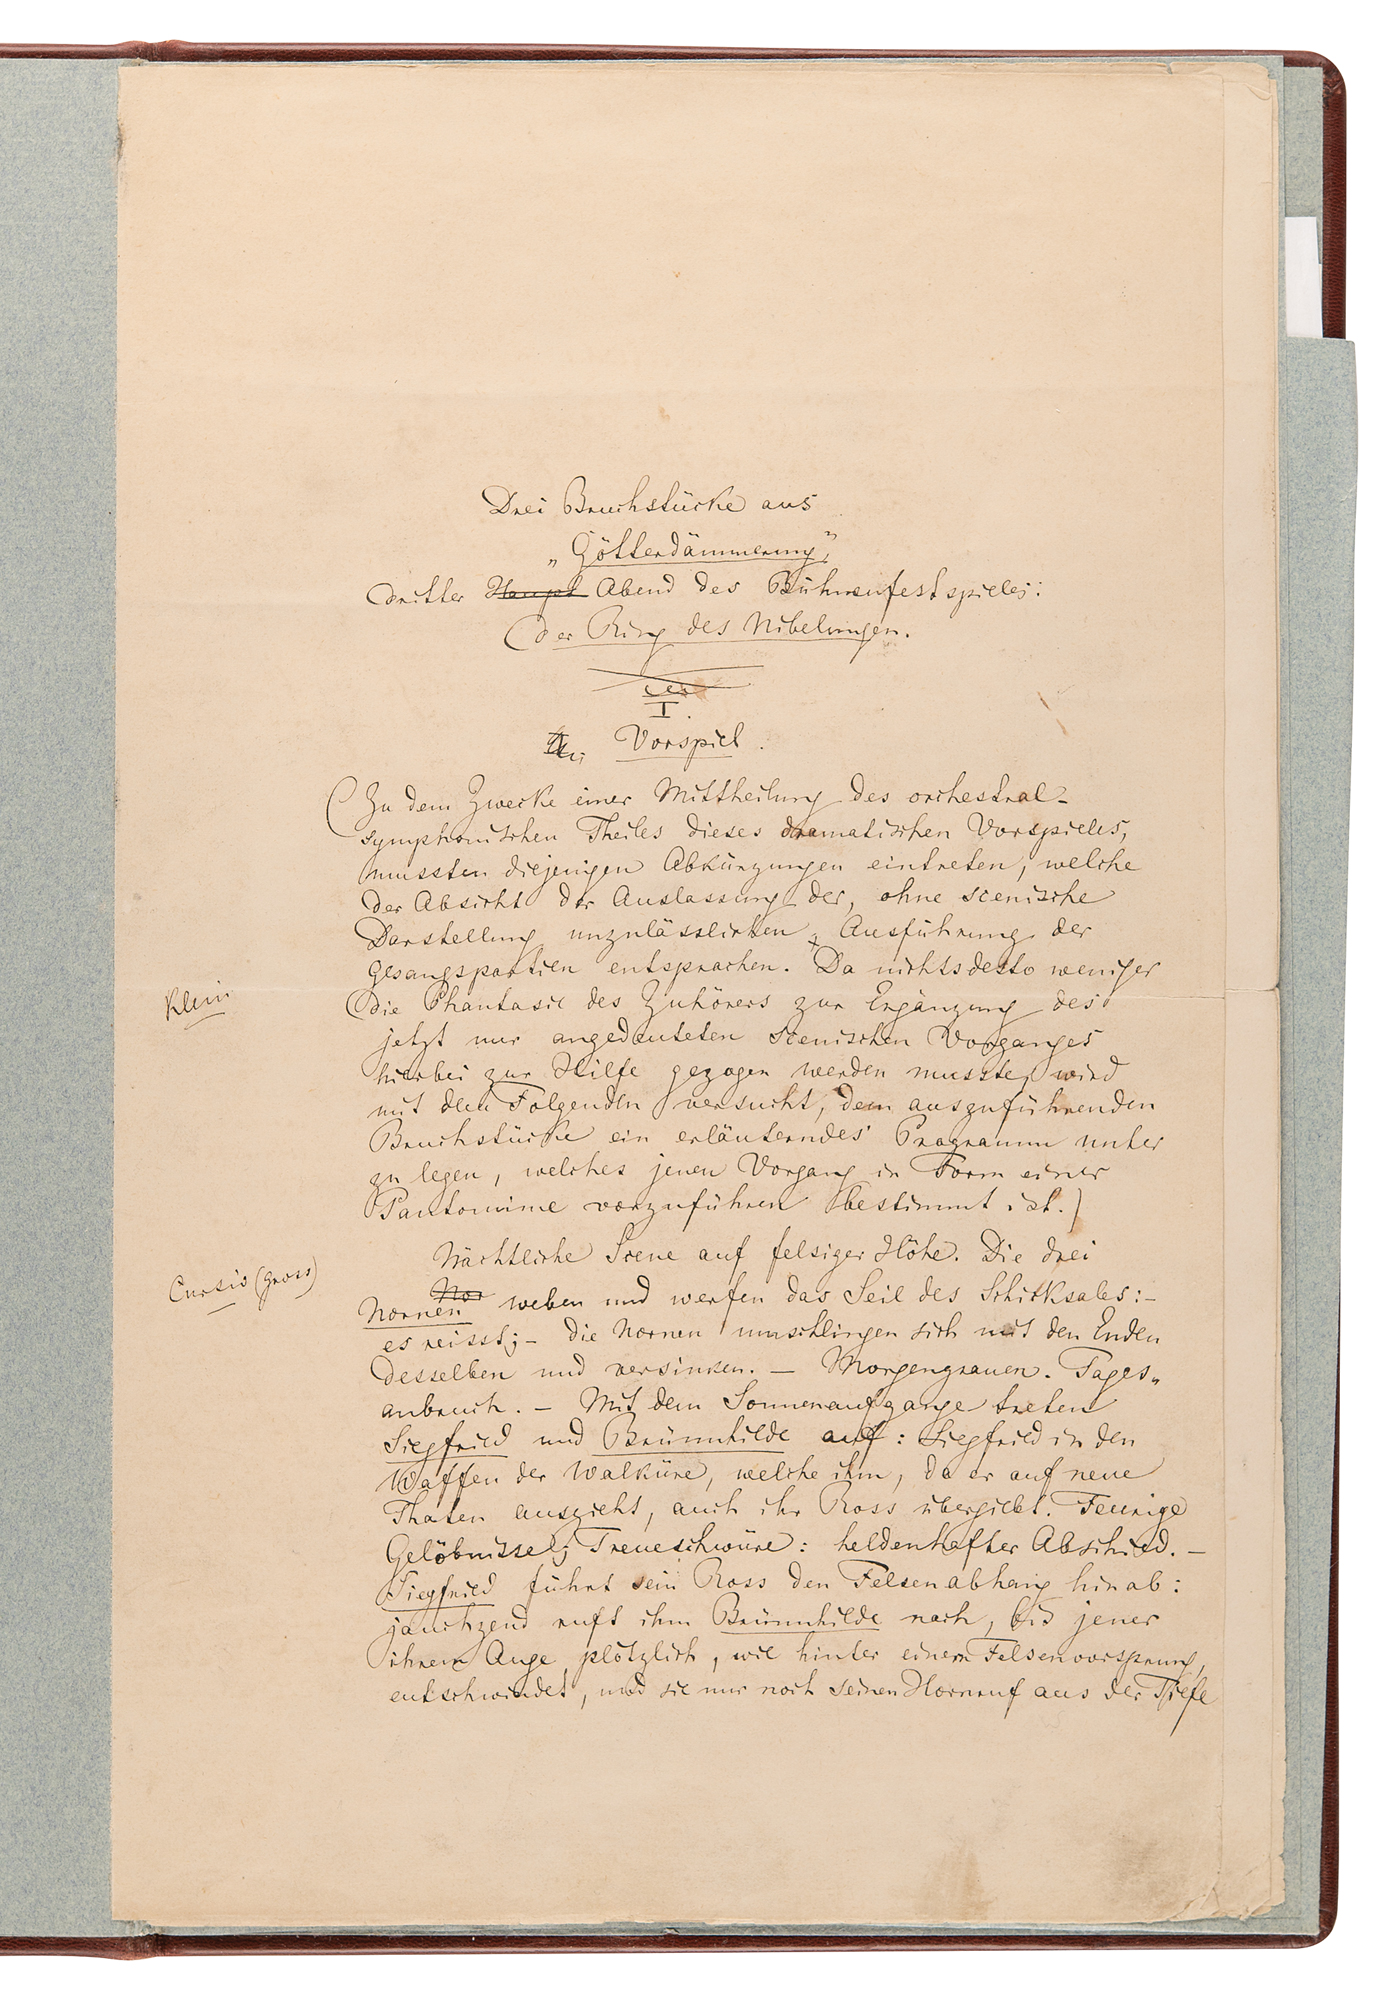 Drei Bruchstücke aus
„Götterdämmerung”,
dritter Haupt Abend des Bühnenfestspieles:
Der Ring des Nibelungen.
I.
Vorspiel.
(Zu dem Zwecke einer Mittheilung des orchestral-
symphonischen Theiles dieses dramatischen Vorspieles,
mussten diejenigen Abkürzungen eintreten, welche
der Absicht der Auslassung der, ohne scenische
Darstellung unzulässlichen, Ausführung der
Gesangspartien entsprachen. Da nichtsdesto weniger
Klein
die Phantasie des Zuhörers zur Ergänzung des
jetzt nur angedeuteten scenischen Vorganges
hierbei zur Hilfe gezogen werden musste, wird
mit dem Folgenden versucht, dem auszuführenden
Bruchstücke ein erläuterndes Programm unter
zu legen, welches jenen Vorgang in Form einer
Pantomime vorzuführen bestimmt ist.)
Nächtliche Scene auf felsiger Höhe. Die drei
Cursiv (gross)
Nor
Nornen weben und werfen das Seil des Schicksales: –
es reisst; – die Nornen umschlingen sich mit den Enden
desselben und versinken. – Morgengrauen. Tages„
anbruch. – Mit dem Sonnenaufgange treten
Siegfried und Brünnhilde auf: Siegfried in den
Waffen der Walküre, welche ihm, da er auf neue
Thaten auszieht, auch ihr Ross übergiebt. Feurige
Gelöbnisse; Treueschwüre: heldenhafter Abschied. –
Siegfried führt sein Ross den Felsenabhang hinab:
jauchzend ruft ihm Brünnhilde nach, bis jener
ihrem Auge plötzlich, wie hinter einem Felsenvorsprung,
entschwindet, und sie nur noch seinen Hornruf aus der Tiefe